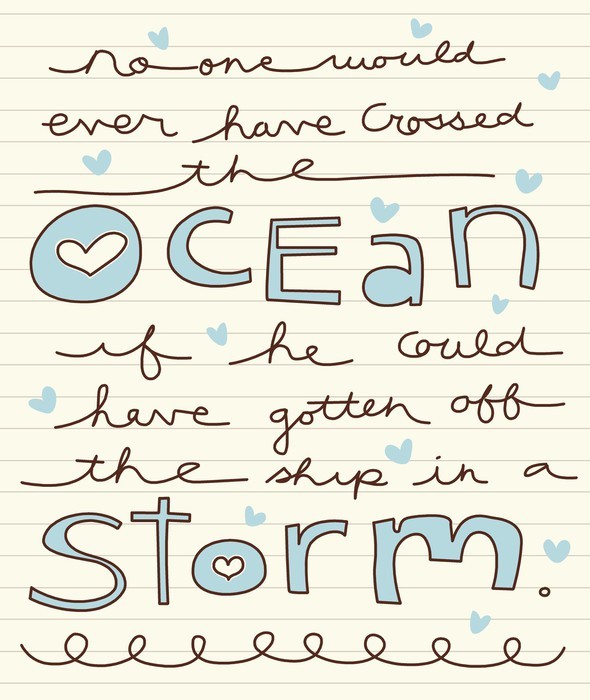 no one would
ever have Crossed
the
OCEan
if he could
have gotten off
the ship in a
Storm.